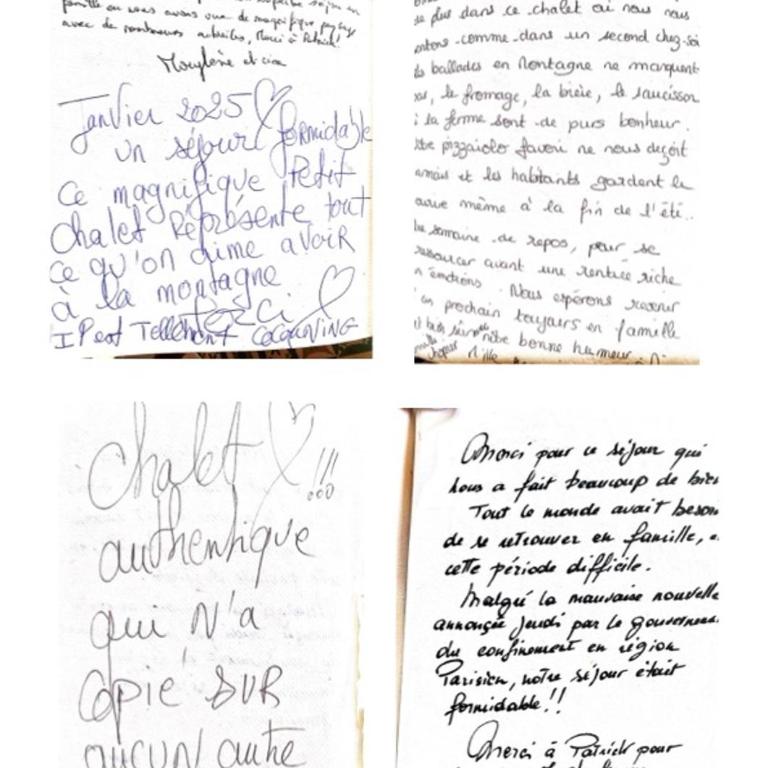 famille où nous avons vue de magnifique paysages
avec de nombreuses activités, Merci à Patrick!
Janvier 2025
un séjour formidable
Ce magnifique Petit
Chalet Représente tout
ce qu'on aime avoir
à la montagne
Merci
Il est Tellement COCOONING
de plus dans ce chalet où nous nous
sentons comme dans un second chez-soi
ballades en Montagne ne manquent
pas, le fromage, la bière, le saucisson
à la ferme sont de purs bonheur.
pizzaiolo favori ne nous deçoit
jamais et les habitants gardent le
même à la fin de l'été..
semaine de repos, pour se
ressourcer avant une rentrée riche
en émotions. Nous espérons revenir
an prochain toujours en famille
bonne humeur
Chalet !!!
authentique
qui N'a
copié SUR
aucun autre
Merci pour ce séjour qui
nous a fait beaucoup de bien
Tout le monde avait besoin
de se retrouver en famille,
cette période difficile.
Malgré la mauvaise nouvelle
annonçée Jeudi par le gouvernement
du confinement en région
Parisien, notre séjour était
formidable!!
Merci à Patrick pour